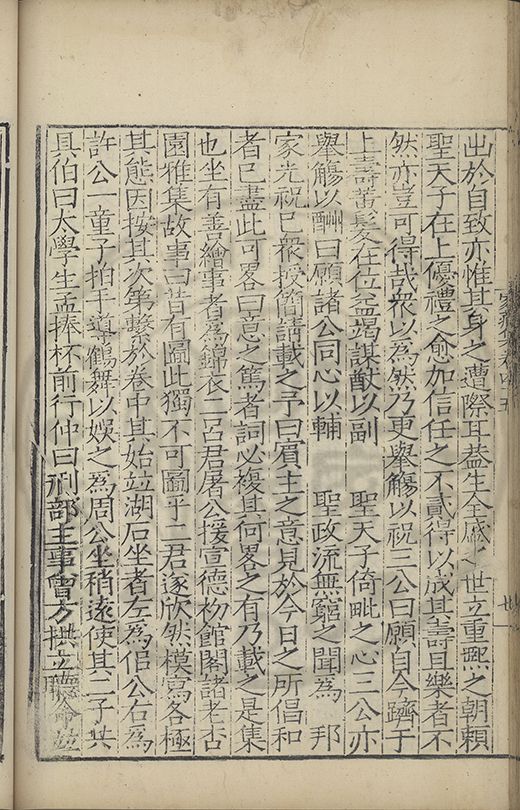 出於自致亦惟其身之遭際耳葢生全盛之世立重熙之朝賴
聖天子在上優禮之愈加信任之不貳得以成其壽且樂者不
然亦豈可得哉衆以為然乃更舉觴以祝三公曰願自今躋于
上壽黃髮在位益竭謀猷以副 聖天子倚毗之心三公亦
舉觴以酬曰願諸公同心以輔 聖政流無窮之聞為 邦
家光祝已衆授簡請載之予曰賓主之意見於今日之所倡和
者已盡此可畧曰意之篤者詞必複其何畧之有乃載之是集
也坐有善繪事者為錦衣二呂君屠公援宣德初館閣諸老杏
園雅集故事曰昔有圖此獨不可圖乎二君遂欣然模寫各極
其態因按其次第繫於卷中其始竝湖石坐者左為侣公右為
許公一童子拍手導鶴舞以娛之為周公坐稍遠使其二子共
具伯曰太學生孟捧杯前行仲曰刑部主事曾方拱立聽命竝